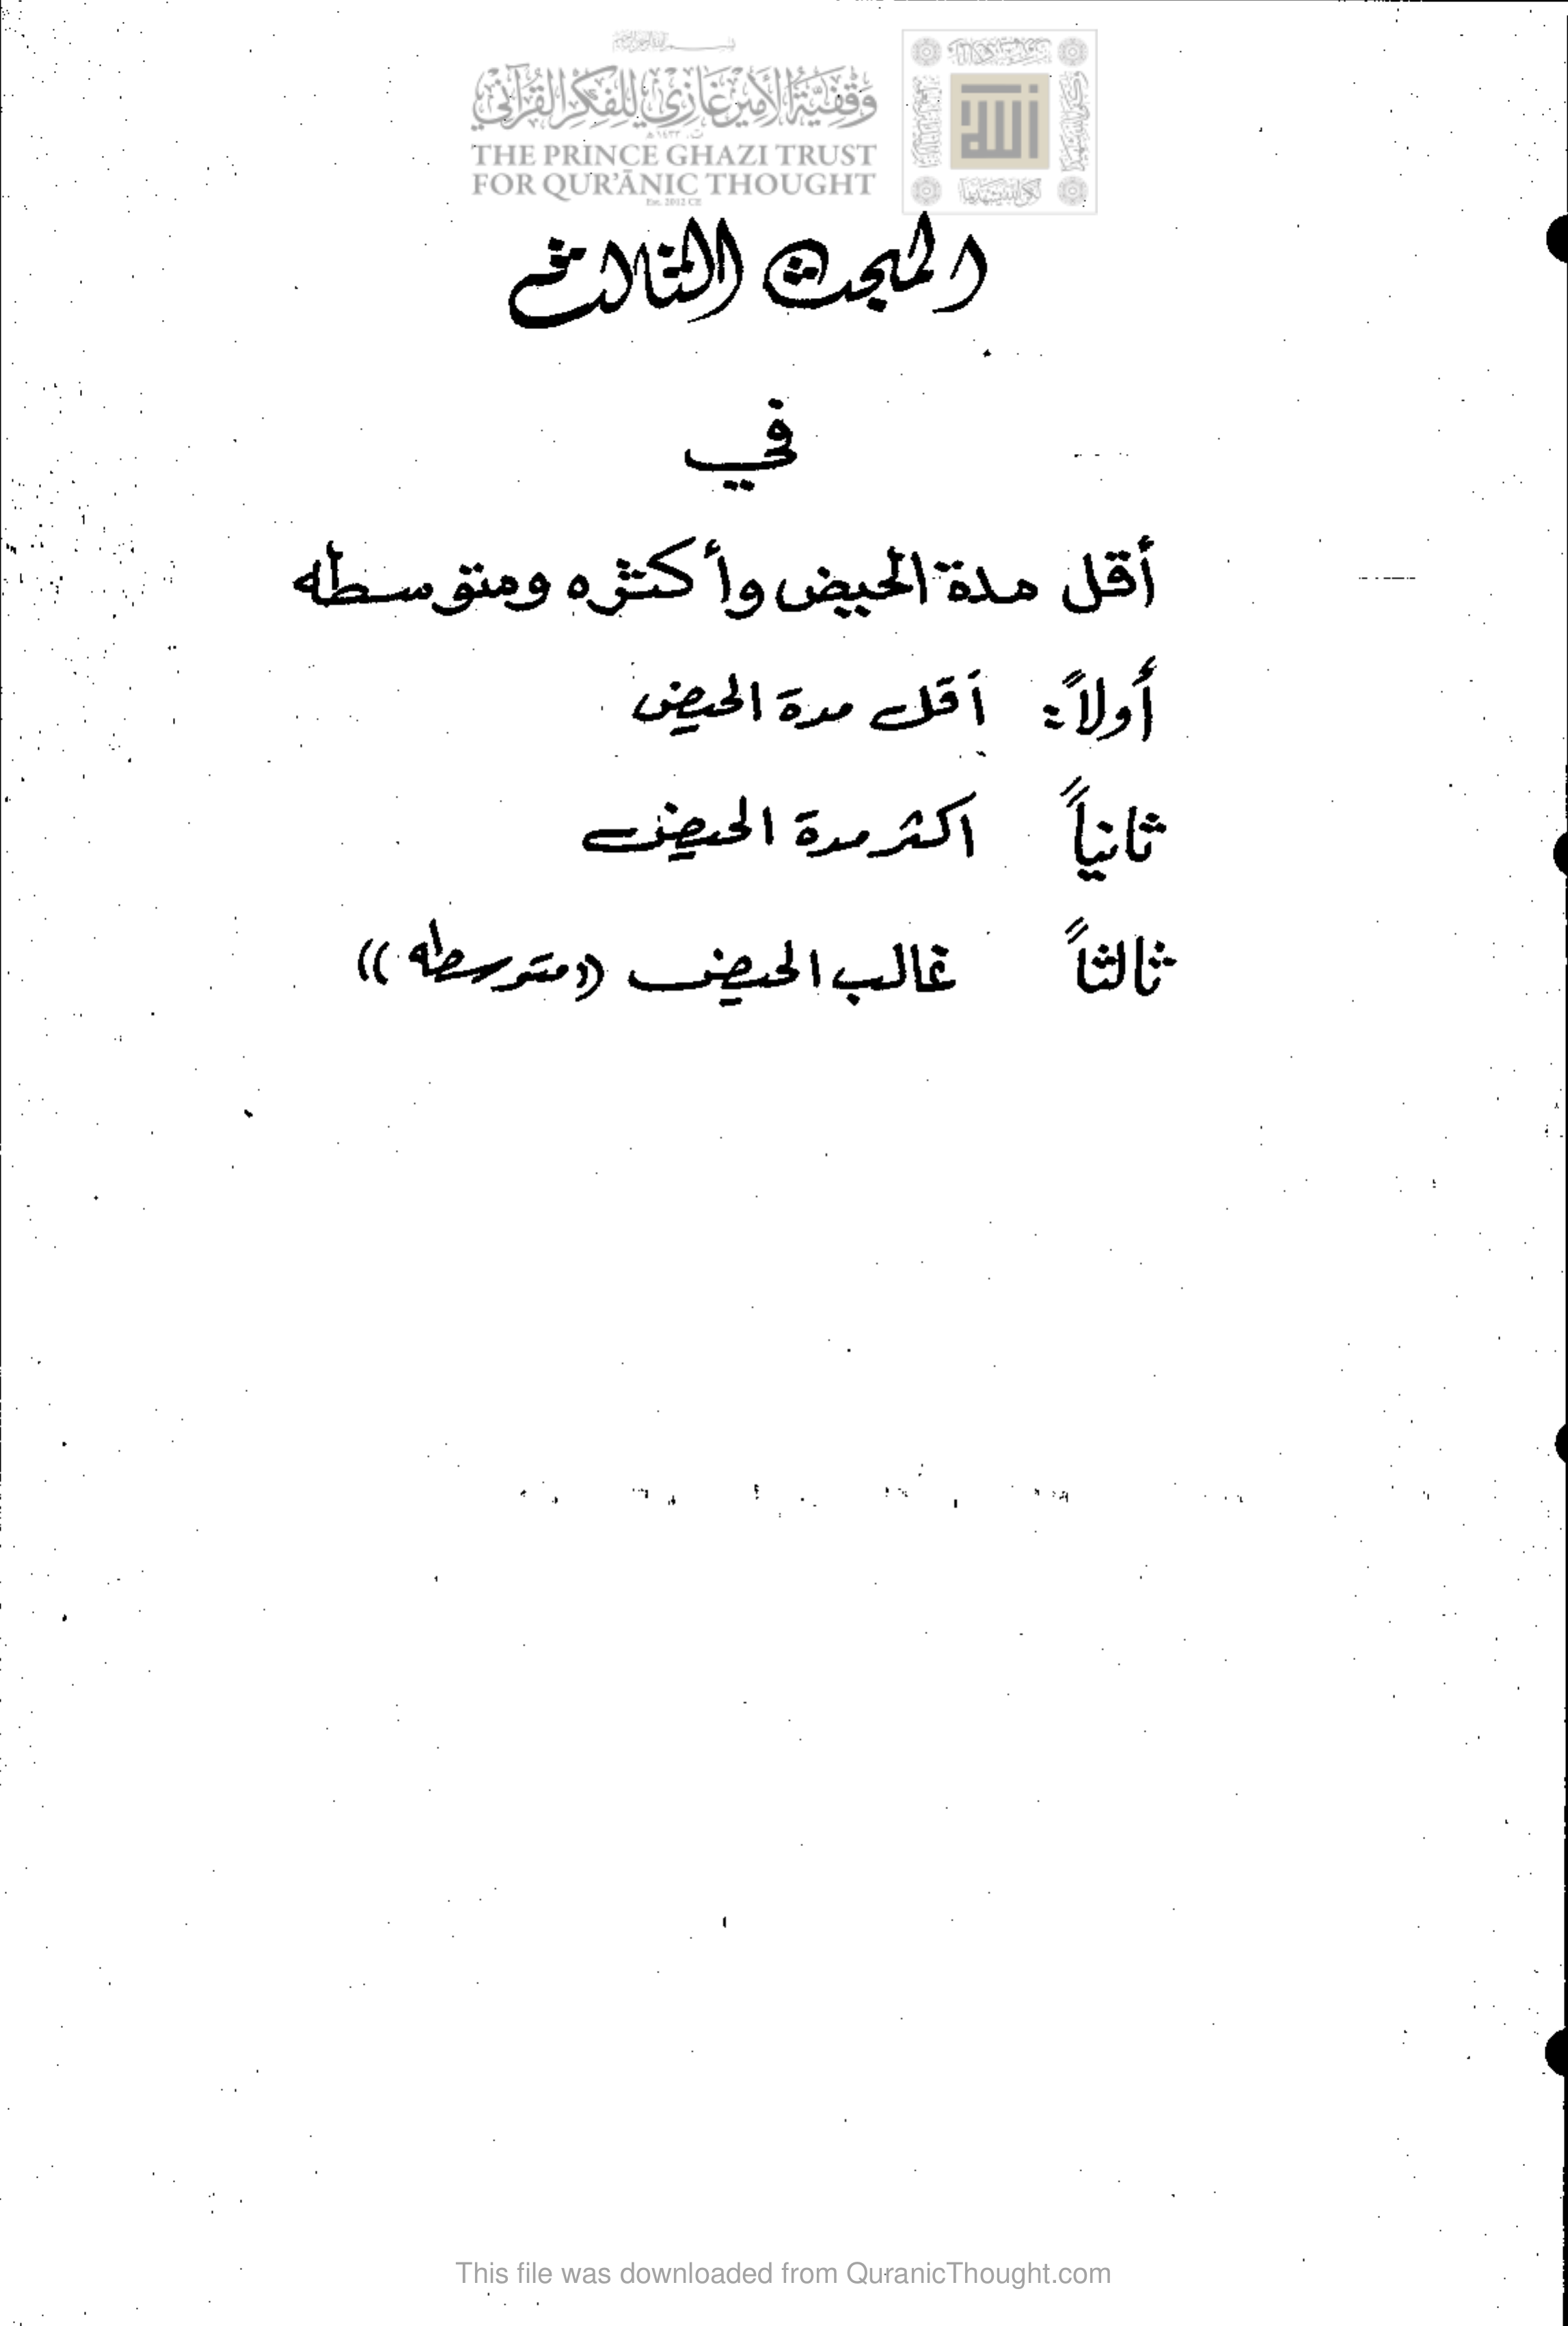 وقفية الأمير غازي للفكر القرآني
THE PRINCE GHAZI TRUST
FOR QUR'ĀNIC THOUGHT
Est. 2012 CE
المبحث الثالث
في
أقل مدة الحيض وأكثره ومتوسطه
أولاً: أقل مدة الحيض
ثانياً اكثر مدة الحيض
ثالثاً غالب الحيض ((متوسطه))
This file was downloaded from QuranicThought.com